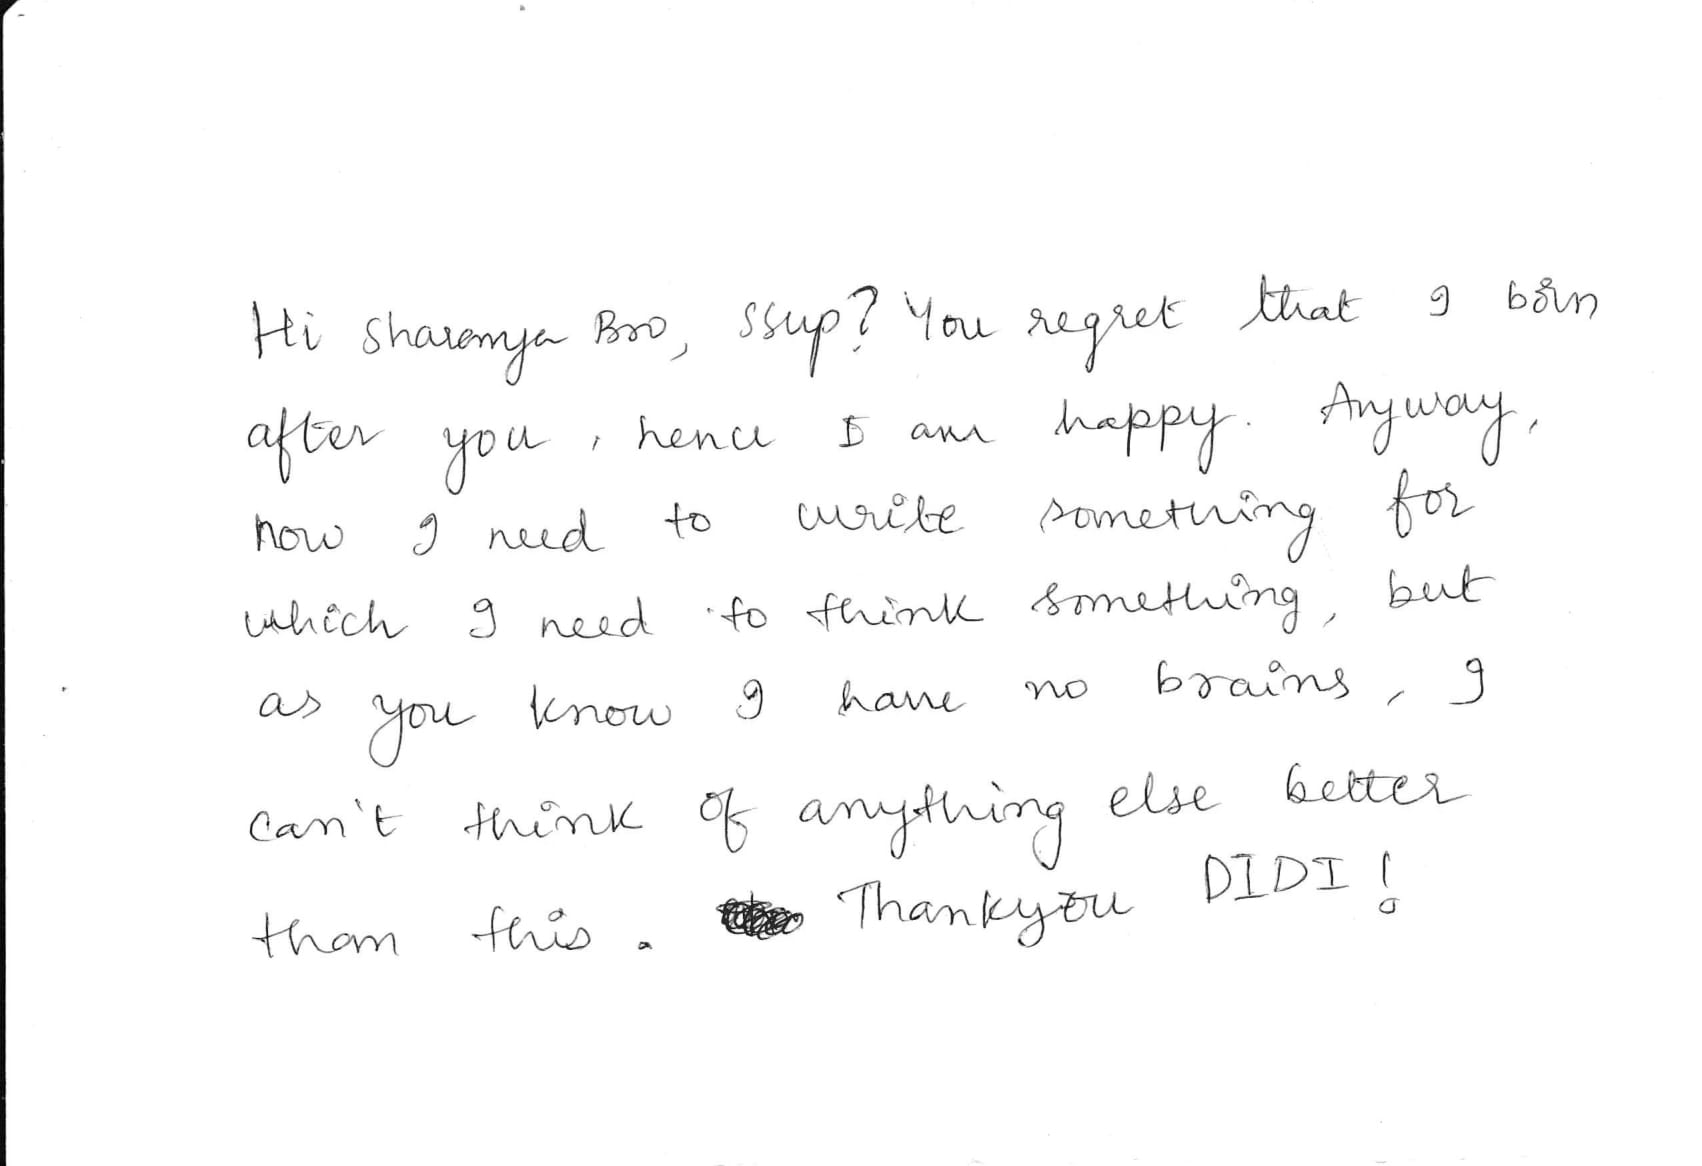 Hi Sharanya Bro, ssup? You regret that I born
after you, hence I am happy. Anyway,
now I need to write something for
which I need to think something, but
as you know I have no brains, I
can't think of anything else better
than this. Thankyou DIDI!